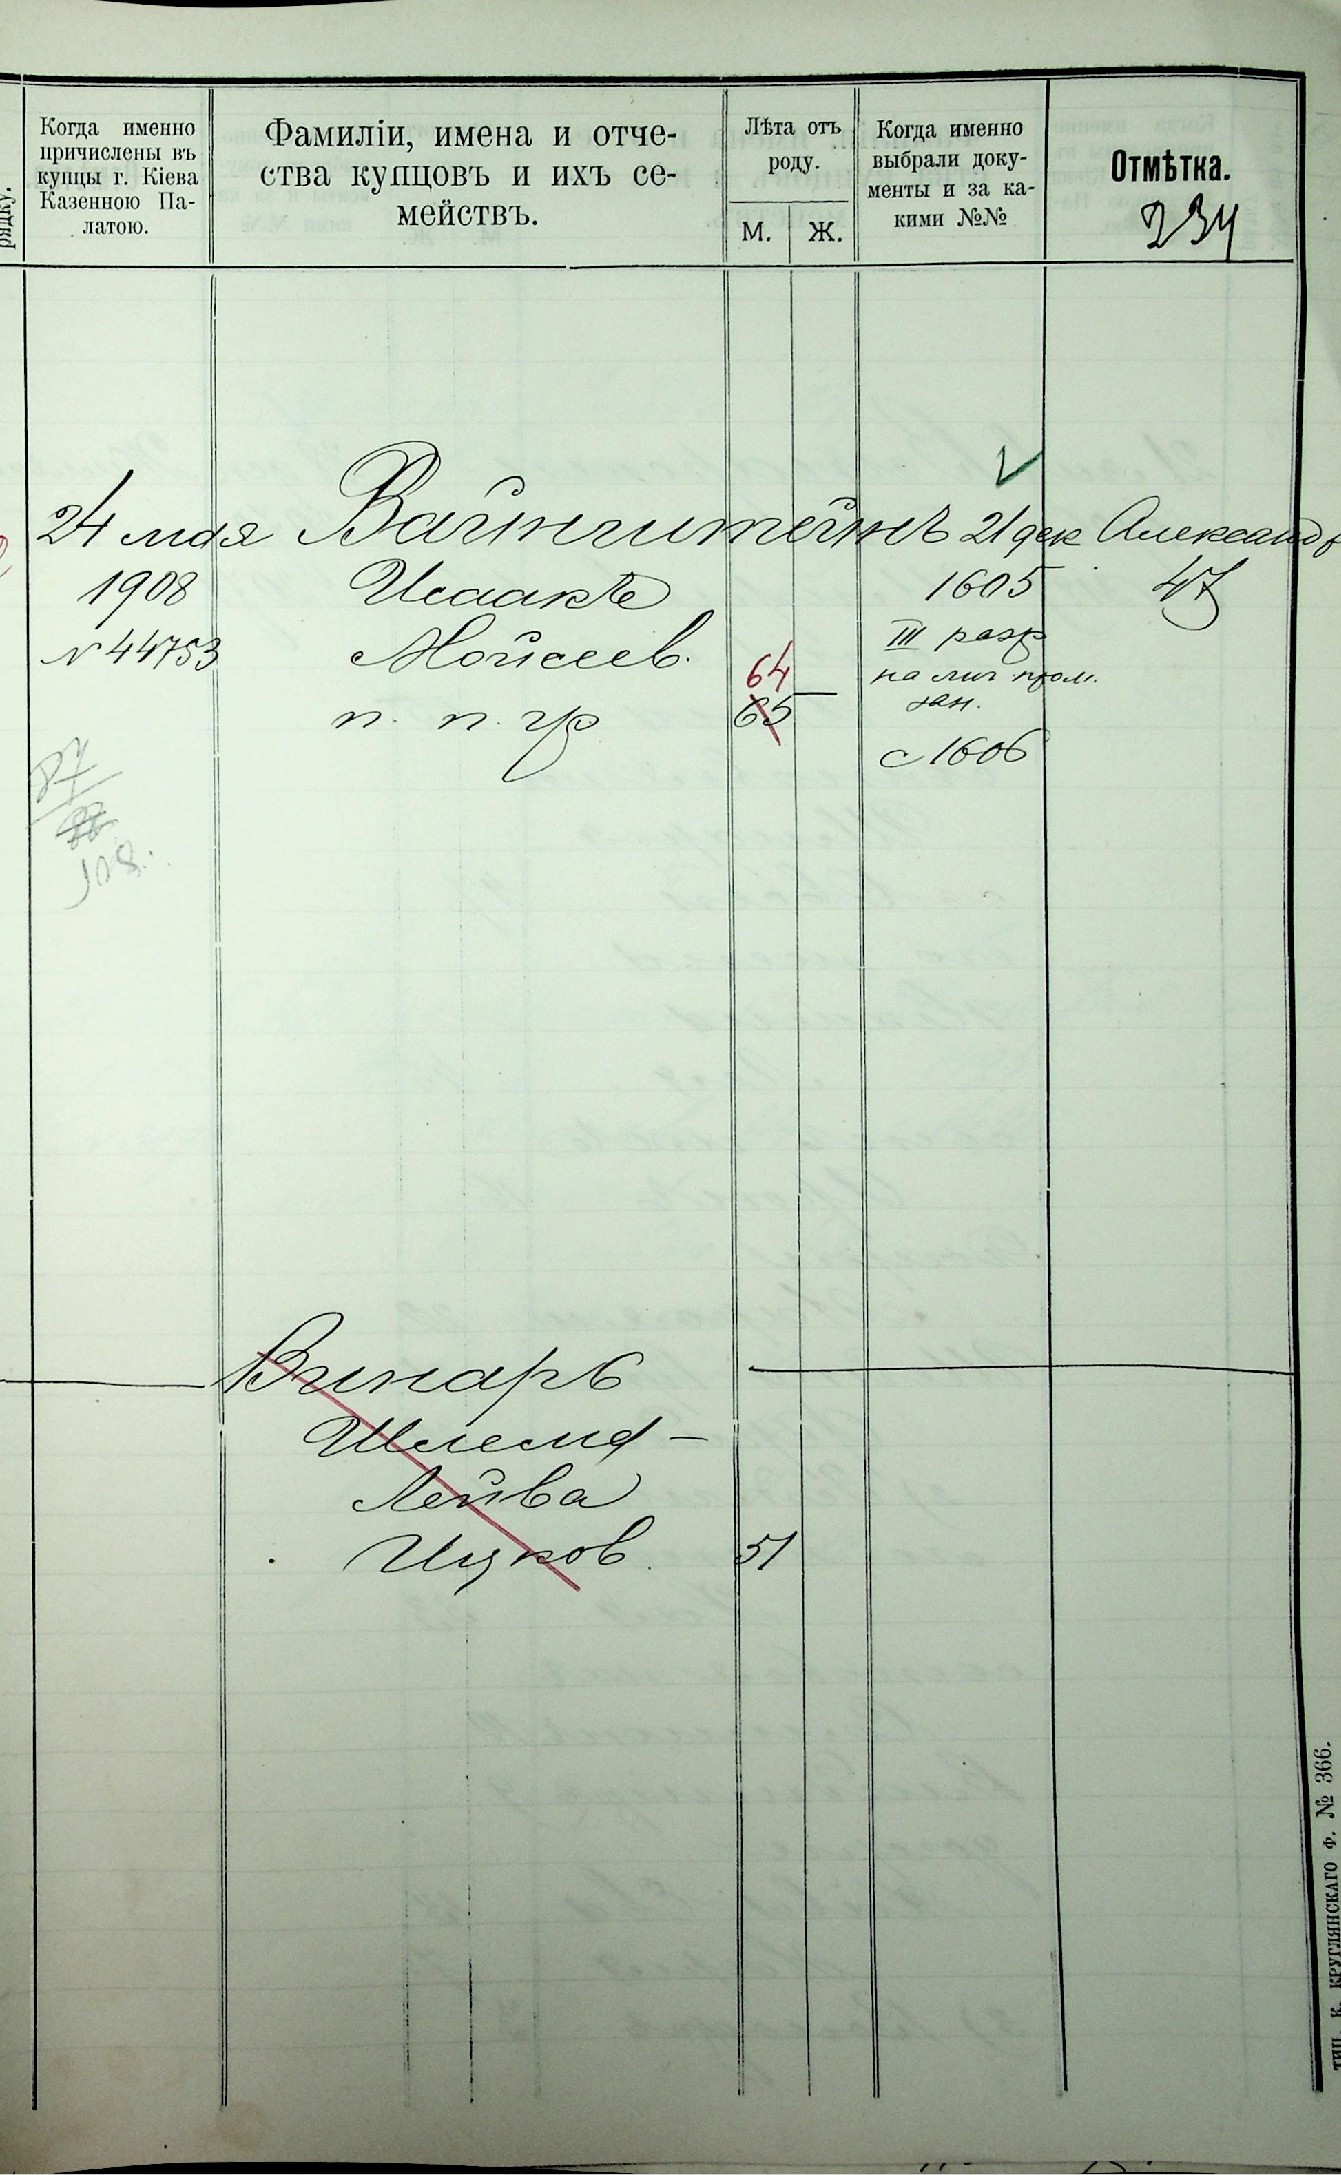 рядку.
Когда именно
причислены въ
купцы г. Кіева
Казенною Па-
латою.
Фамиліи, имена и отче-
ства купцовъ и ихъ се-
мействъ.
Лѣта отъ
роду.
М. Ж.
Когда именно
выбрали доку-
менты и за ка-
кими №№
Отмѣтка.
234
24 мая
1908
№ 44753
87
108
Вайнштейнъ
Исаакъ
Мойсеев.
п. п. гр
64
65 —
21 дек
1605
III разр
на лич пром.
зан.
с 1606
Александр
47
Винаръ
Шлема –
Лейва
Ицков. 51
ТИП. К. КРУГЛЯНСКАГО Ф. № 366.